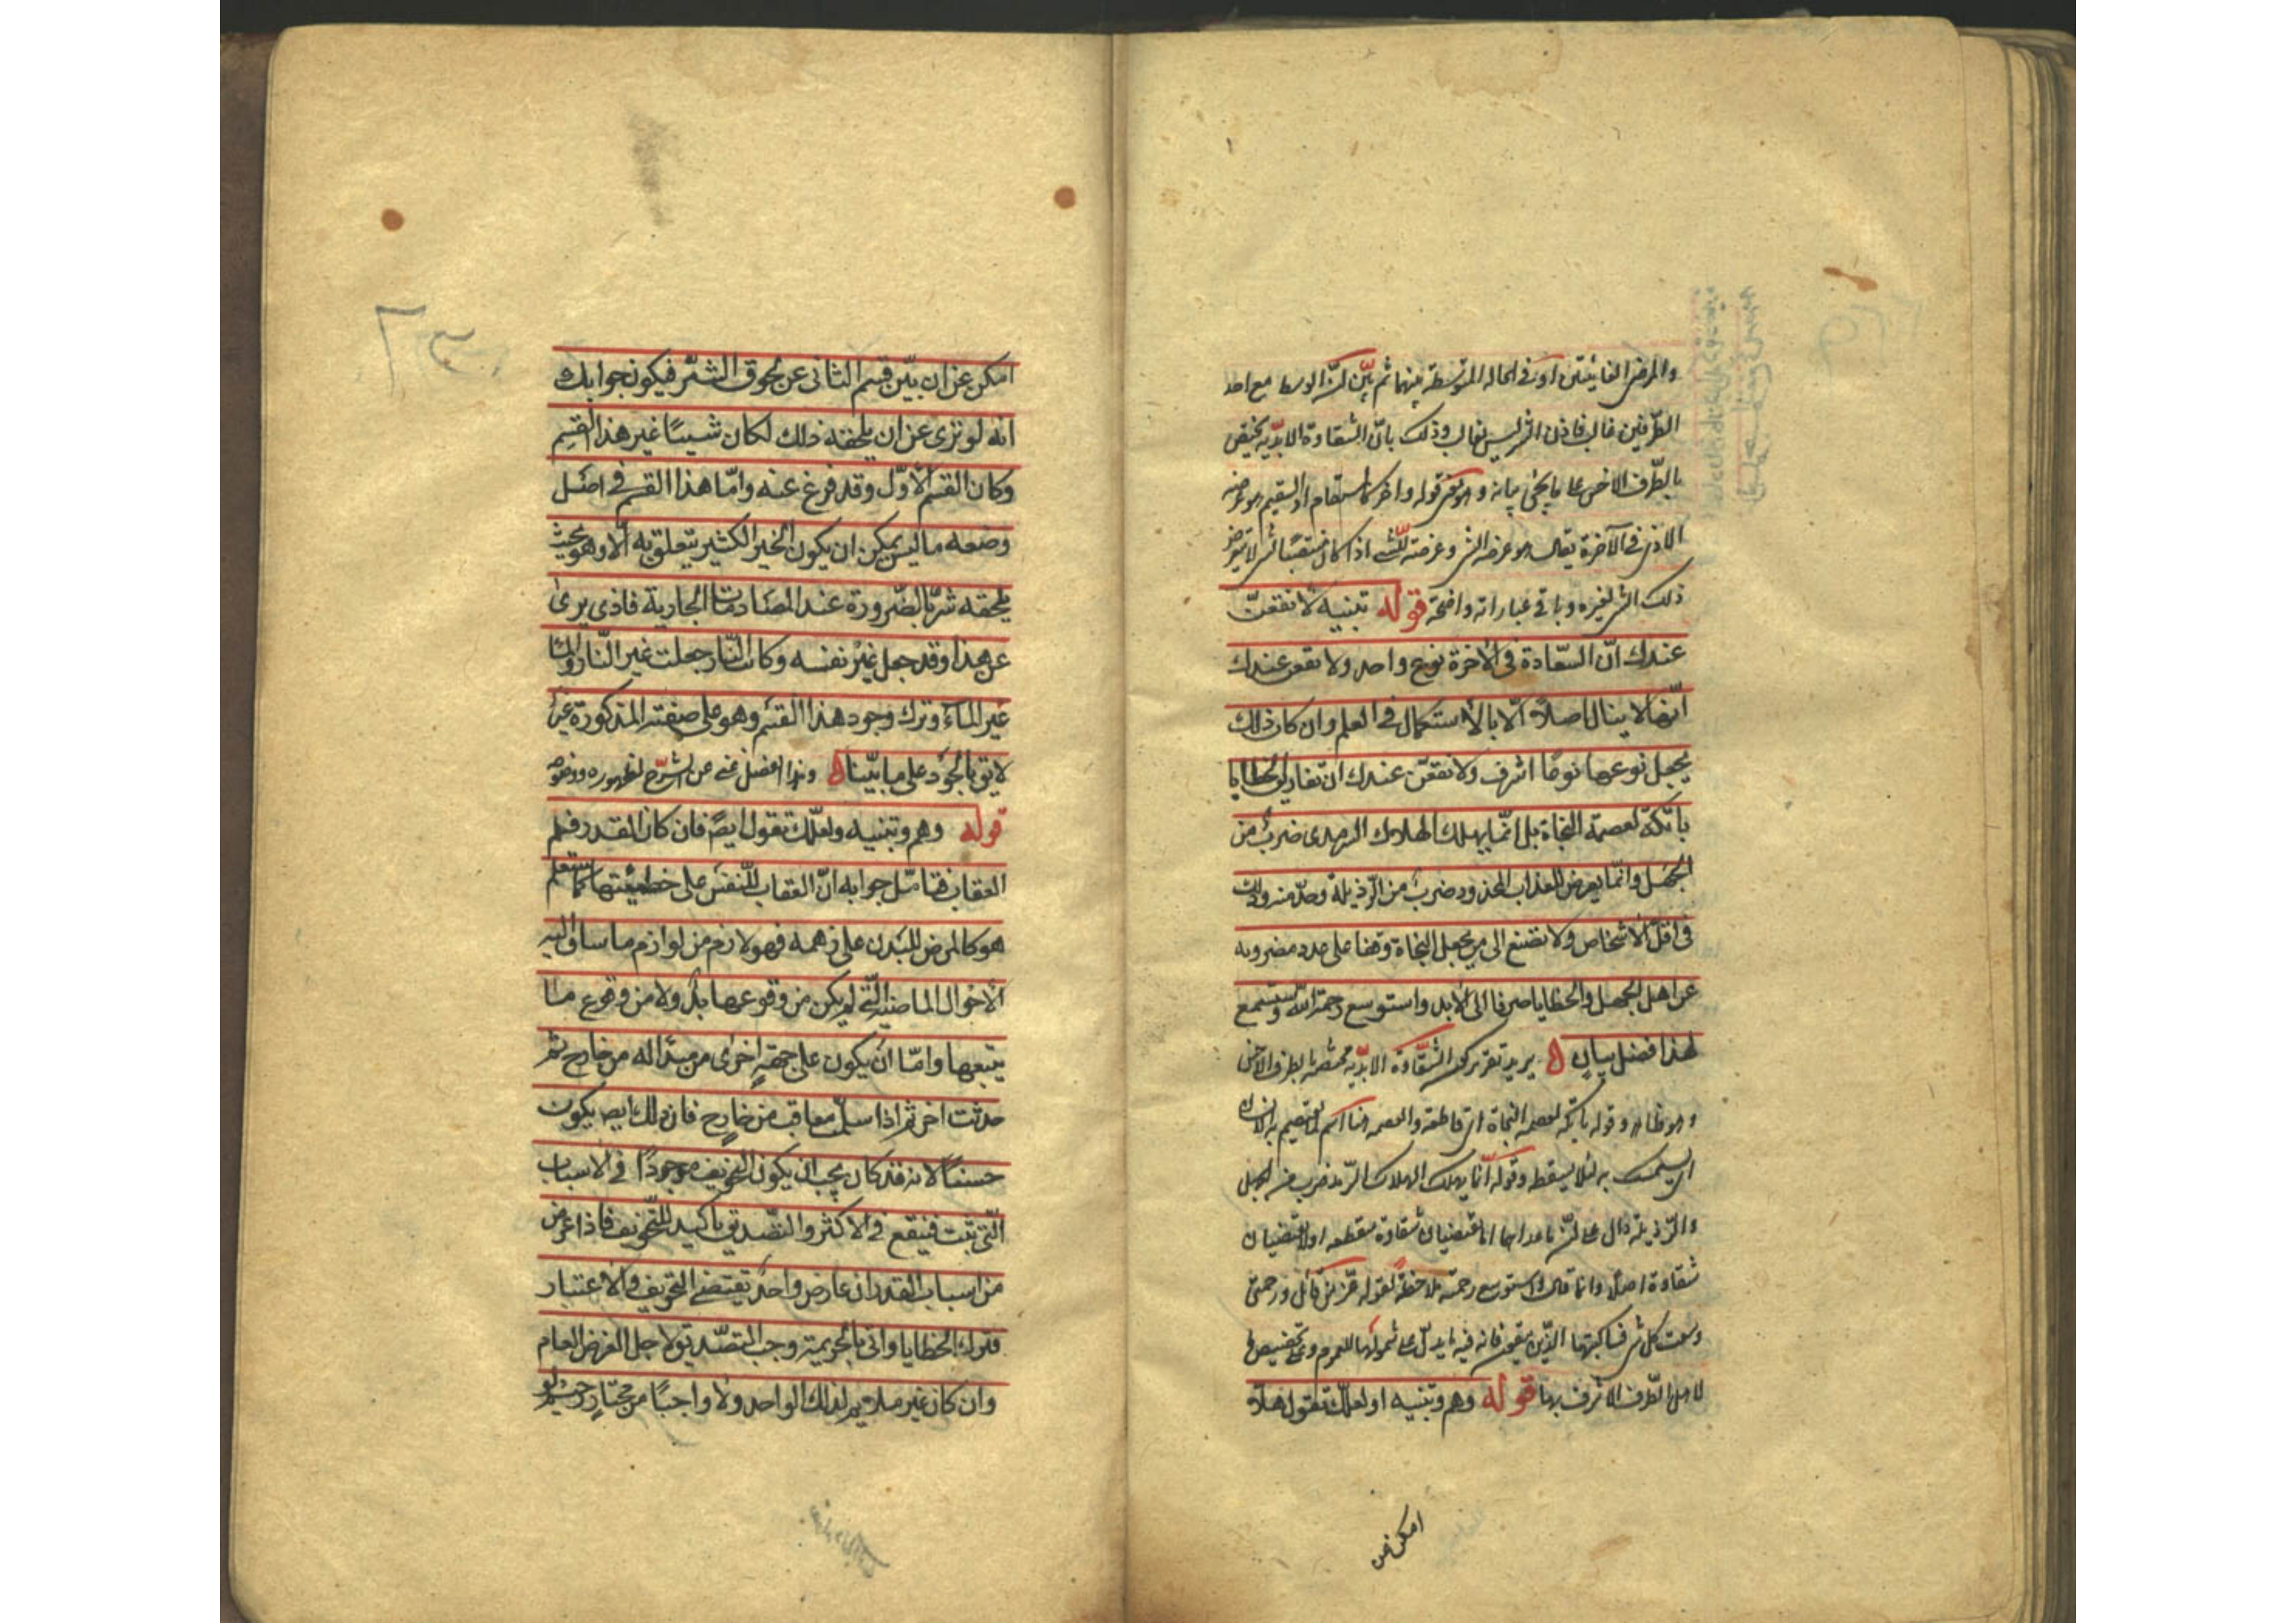 والمرض الغائيتين او في الحالة المتوسطة بينهما ثم بيّن انّ الوسط مع احد
الطرفين غالب فاذن الشر ليس بغالب وذلك بانّ الشقاوة الابدّية يختص
بالطّرف الاخس على ما يجئ بيانه
الاذى في الآخرة يقال هو عرضة الشر وعرضته للشئ اذا كان
ذلك الشر لغيره وباقى عباراته واضحة قوله تنبيه لا يقعنّ
عندك انّ السّعادة فى الآخرة نوع واحد ولا يقعن عندك
انّها لا ينال اصلاً الّا بالاستكمال فى العلم وان كان ذلك
يجعل نوعها نوعًا اشرف ولا يقعنّ عندك ان تفاريق الخطايا
باتكة لعصمة النجاة بل انّما يهلك الهلاك السرمدى ضرب من
الجهل وانّما يعرض للعذاب المحدود ضرب من الرّذيلة وحدّ منه وذلك
فى اقلّ الاشخاص ولا تصغ الى من يجعل النجاة وقفا على عدد مصروفه
عن اهل الجهل والخطايا صرفا الى الابد واستوسع رحمة الله وستسمع
لهذا فضل بيان ل يريد تقرير كون الشقاوة الابدّية مختصة بالطرف الاخس
وهو ظاهر وقوله باتكة لعصمة النجاة اى قاطعة والعصمة هنا اسم لما يعتصم به الانسان
اى يستمسك به لئلا يسقط وقوله انّما يهلك الهلاك السرمد ضرب من الجهل
والرّذيلة دال على انّ ما عداهما اما يقتضيان شقاوة منقطعة او لا يقتضيان
شقاوة اصلاً وانما قال واستوسع رحمة الله ملاحظة لقوله عزّ من قائل ورحمتى
وسعت كل شئ فساكتبها للذّين يتقون فانه فيه ما يدلّ على شمولها للعموم وعلى تخصيص ما
لاهل الطّرف الاشرف بها قوله وهم وتنبيه او لعلّك تقول هلّا
امكن عن
امكن عن ان يبيّن قسم الثانى عن لحوق الشّر فيكون جوابك
انه لو تبرّى عن ان يلحقه ذلك لكان شيئًا غير هذا القسم
وكان القسم الاوّل وقد فرغ عنه وامّا هذا القسم فى اصل
وضعه ما ليس يمكن ان يكون الخير الكثير يتعلق به الّا وهو بحيث
يلحقه شرّ بالضّرورة عند المصادمات الجارية فاذى يرئ
عن هذا وقد جعل غير نفسه وكانت النّار جعلت غير النّار والماء
غير الماء وترك وجود هذا القسم وهو على صفته المذكورة غير
لايق بالجود على ما بيّنا ل وهذا الفصل غنى عن الشرح لظهوره ووضوحه
قوله وهم وتنبيه ولعلّك تقول ايضً فان كان القدر فلم
العقاب فتأمّل جوابه انّ العقاب للنّفس على خطيئتها كما ستعلم
هو كالمرض للبدن على نهمه فهو لازم من لوازم ما ساق اليه
الاحوال الماضية الّتى لم يكن من وقوعها بدّ ولا من وقوع ما
يتبعها وامّا ان يكون على جهةٍ اخرى من مبدأ له من خارج ثم
حديث اخر ثم اذا سلّم معاقب من خارج فان ذلك ايض يكون
حسنًا لانه قد كان يجب ان يكون التخويف موجودًا فى الاسباب
التى تثبت فينفع فى الاكثر والتصديق تاكيد للتخويف فاذا عرض
من اسباب القدر ان عارض واحدٌ يقتضى التخويف والاعتبار
فترك الخطايا واتى بالجريمة وجب التصديق لاجل الغرض العام
وان كان غير ملايم لذلك الواحد ولا واجبًا من مختارٍ رحيمٍ لو